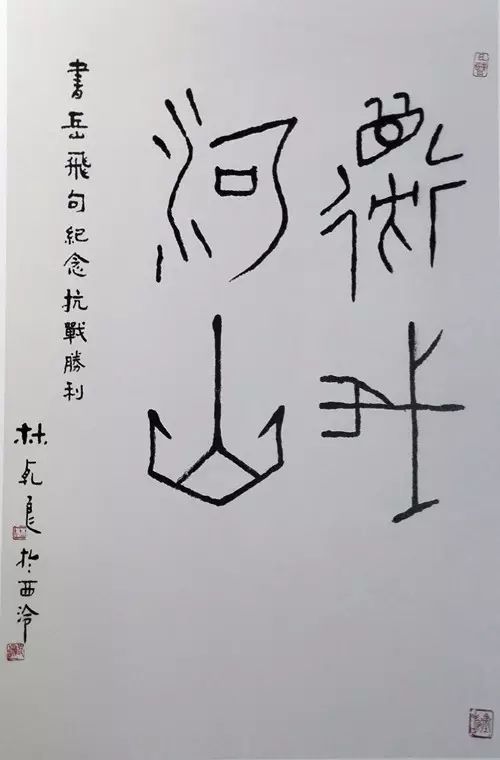 還我
河山
書岳飛句紀念抗戰勝利
林乾良於西泠